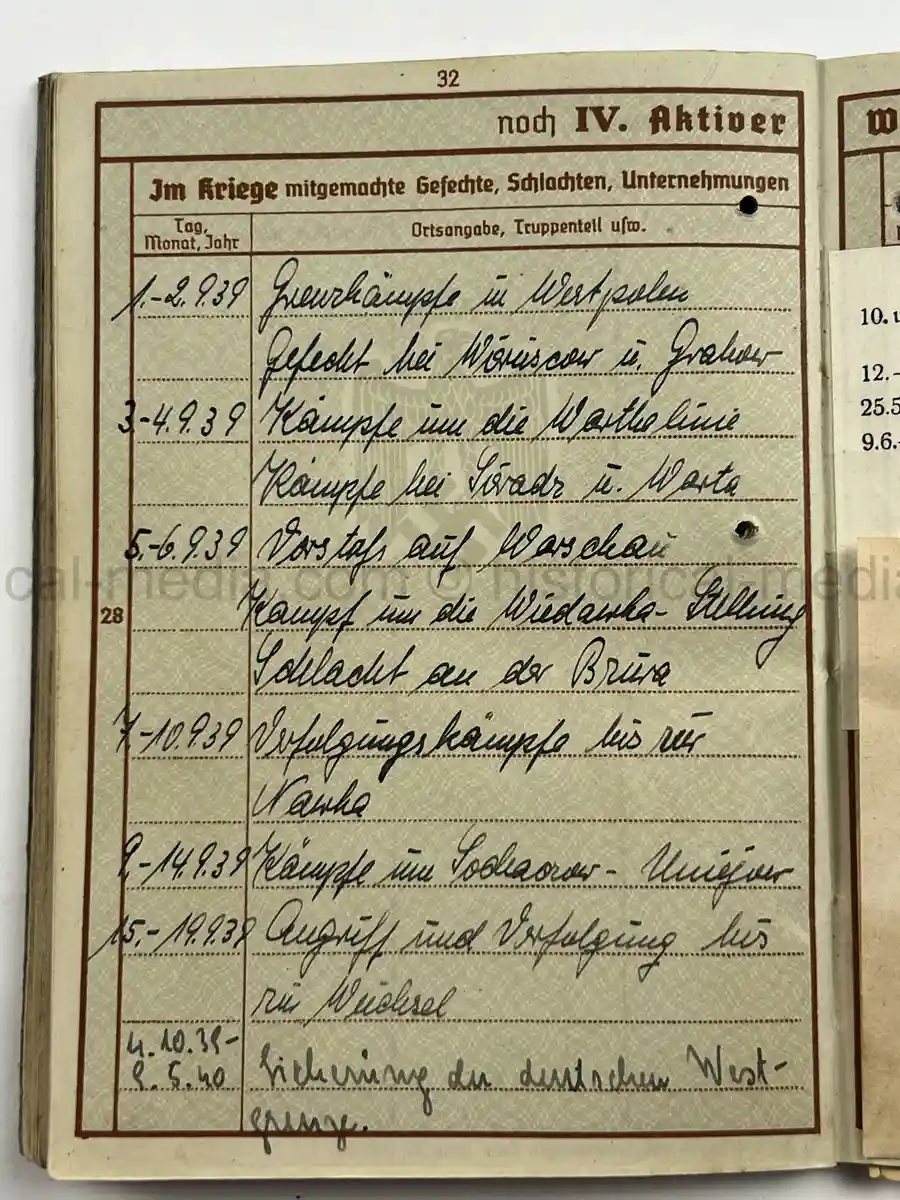 32
noch IV. Aktiver
Im Kriege mitgemachte Gefechte, Schlachten, Unternehmungen
Tag, Monat, Jahr
Ortsangabe, Truppenteil usw.
1.-2.9.39 Grenzkämpfe in Westpolen
Gefecht bei u. Grabow
3.-4.9.39 Kämpfe um die Warthelinie
Kämpfe bei Sieradz u. Warta
5.-6.9.39 Vorstoß auf Warschau
28
Kampf um die Widawka-Stellung
Schlacht an der Bzura
7.-10.9.39 Verfolgungskämpfe bis zur
Rawka
9.-14.9.39 Kämpfe um Sochaczow - Uniejow
15.-19.9.39 Angriff und Verfolgung bis
zu Weichsel
4.10.39-
9.5.40 Sicherung der deutschen West-
grenze.
W
10. u
12.-
25.5
9.6.-
cal-media.com © historical-media